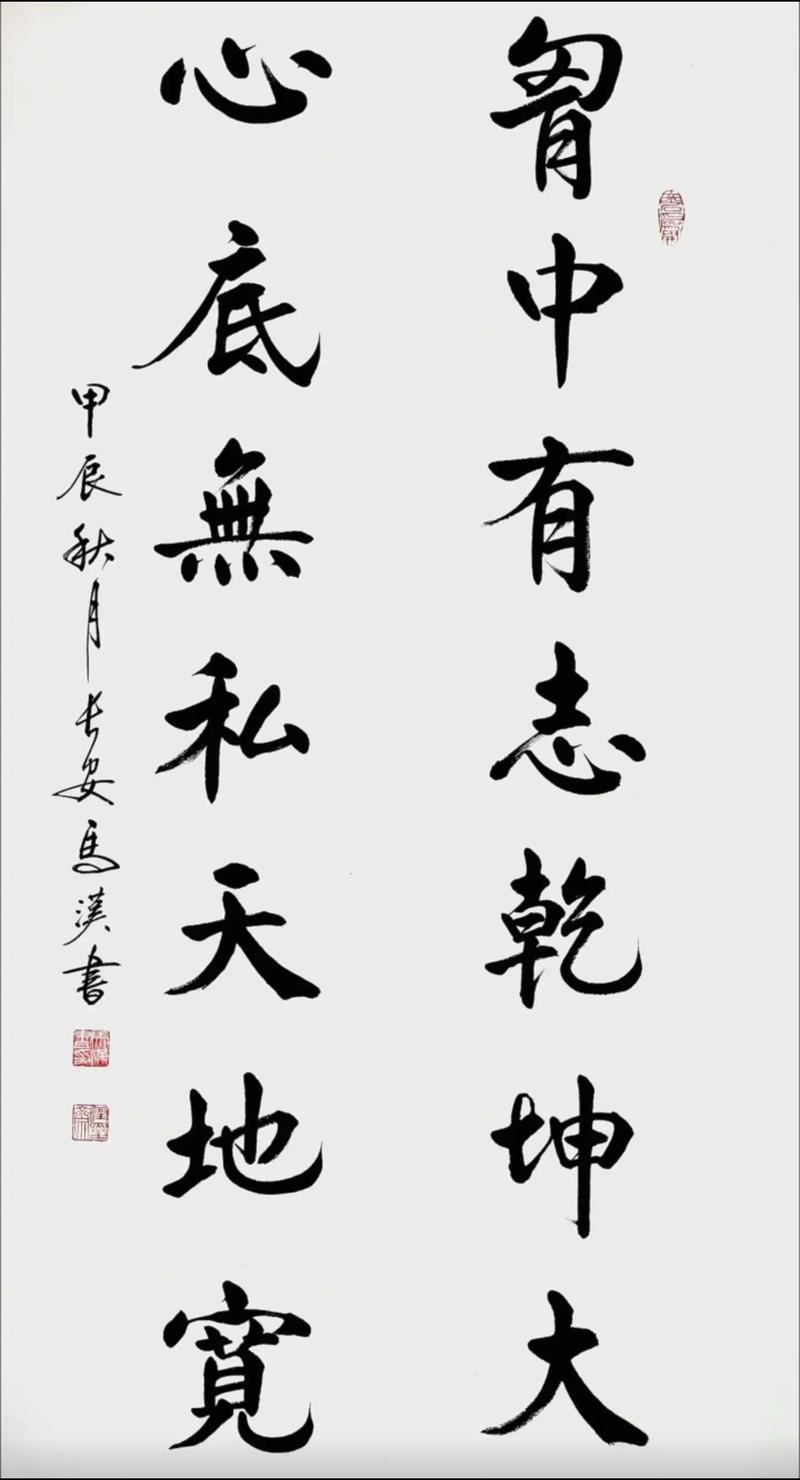 胷中有志乾坤大
心底無私天地寬
甲辰秋月长安馬漢书